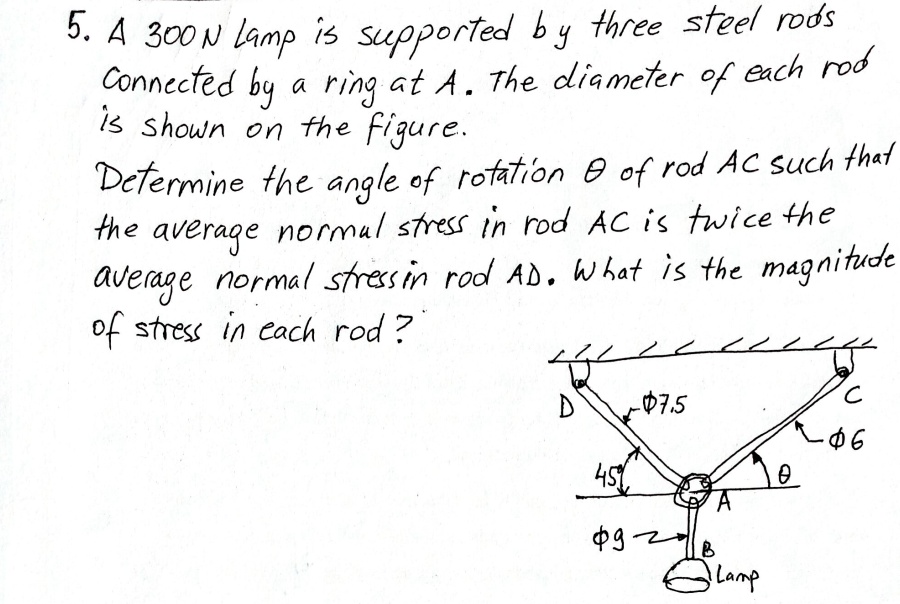 5. A 300N Lamp is supported by three steel rods
Connected by a ring at A. The diameter of each rod
is shown on the figure.
Determine the angle of rotation θ of rod AC such that
the average normal stress in rod AC is twice the
average normal stress in rod AD. What is the magnitude
of stress in each rod?
D
φ7.5
C
φ6
45°
θ
A
φ9
B
Lamp